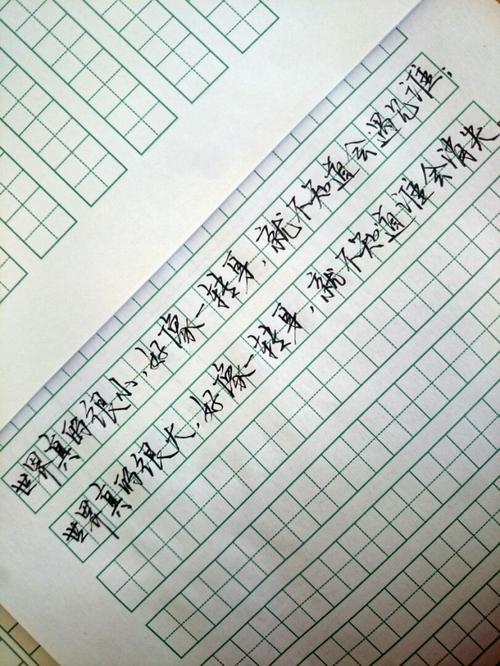 世界真的很小,好像一转身,就不知道会遇见谁;
世界真的很大,好像一转身,就不知道谁会消失